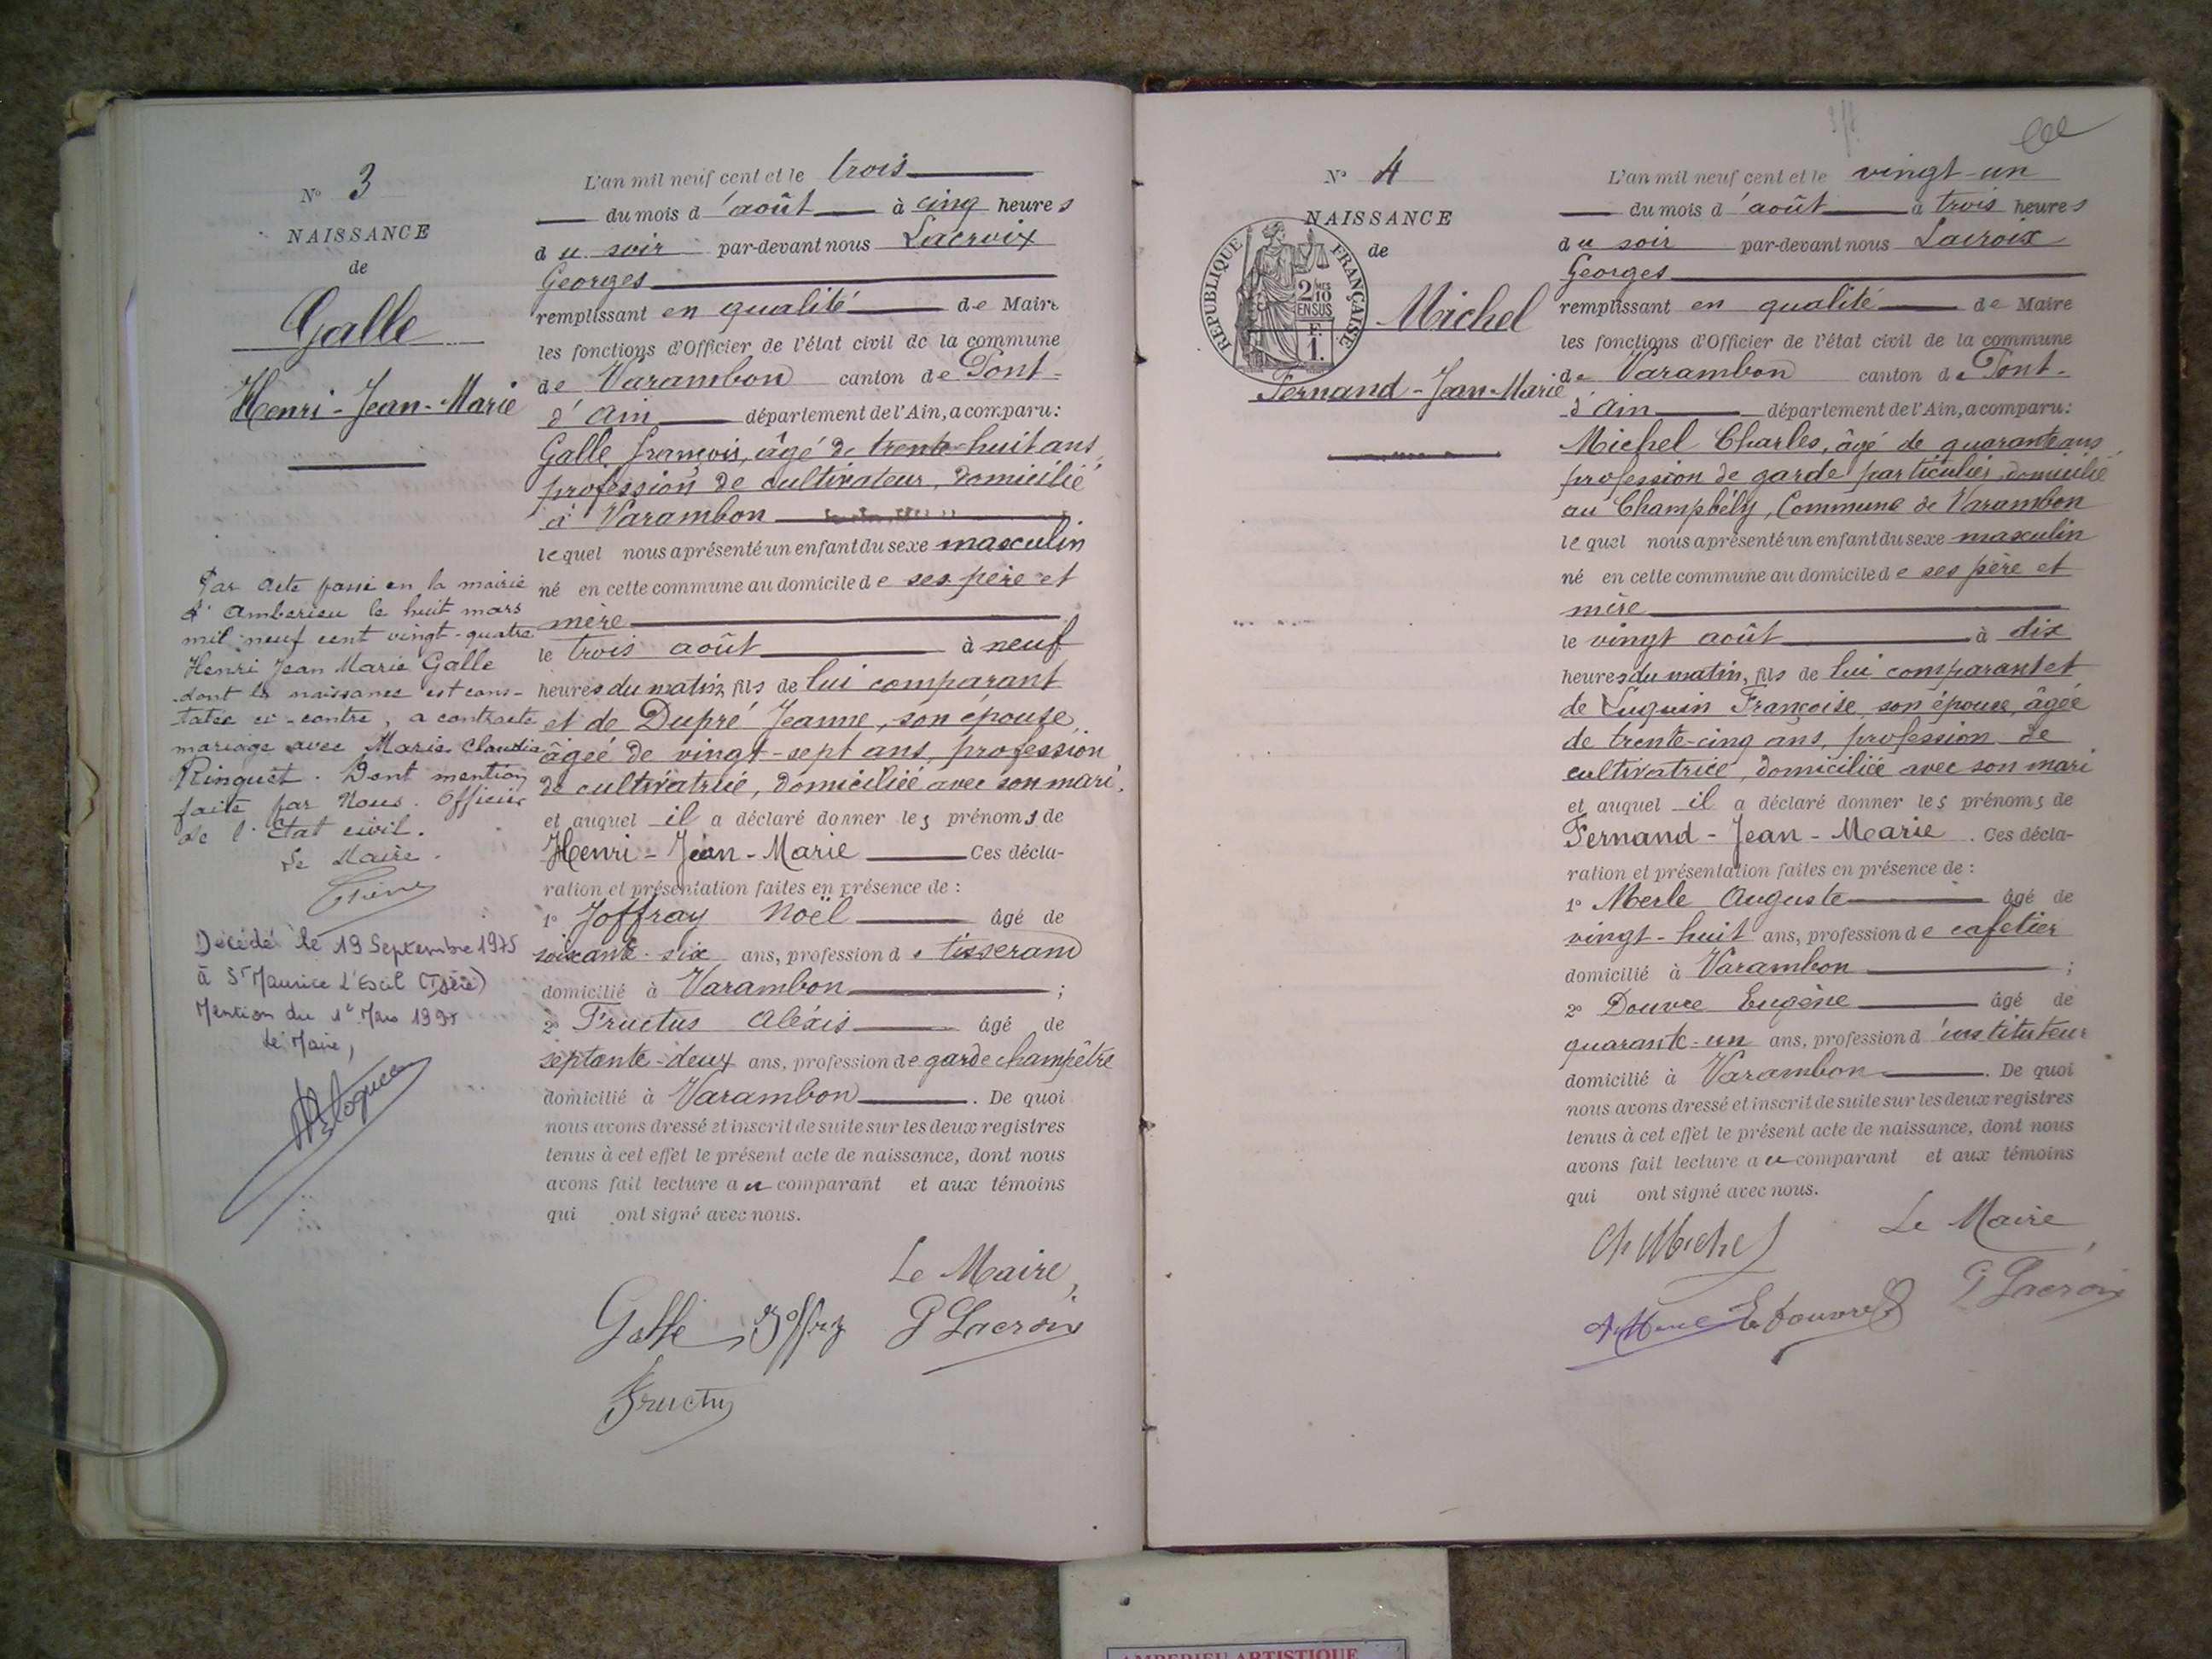 N° 3
NAISSANCE
de
Galle
Henri-Jean-Marie
Par acte passé en la mairie
d'Amberieu le huit mars
mil neuf cent vingt-quatre
Henri Jean Marie Galle
dont la naissance est cons-
tatée ci-contre, a contracté
mariage avec Marie Claudia
Rinquet. Dont mention
faite par Nous. Officier
de l'Etat civil.
Le Maire.
Décédé le 19 Septembre 1975
à St Maurice l'Exil (Isère)
Mention du 1e Mars
Le Maire,
L'an mil neuf cent et le trois
du mois d'août à cinq heures
du soir par-devant nous Lacroix
Georges
remplissant en qualité de Maire
les fonctions d'Officier de l'état civil de la commune
de Varambon canton de Pont-
d'Ain département de l'Ain, a comparu:
Galle françois, âgé de trente-huit ans,
profession de cultivateur, domicilié
à Varambon
lequel nous a présenté un enfant du sexe masculin
né en cette commune au domicile de ses père et
mère
le trois août à neuf
heures du matin, fils de lui comparant
et de Dupré Jeanne, son épouse,
âgée de vingt-sept ans, profession
de cultivatrice, domiciliée avec son mari,
et auquel il a déclaré donner les prénoms de
Henri-Jean-Marie Ces décla-
ration et présentation faites en présence de :
1° Joffray Noël âgé de
soixante-six ans, profession de tisserand
domicilié à Varambon ;
2° Fructus Aléxis âgé de
septante-deux ans, profession de garde champêtre
domicilié à Varambon. De quoi
nous avons dressé et inscrit de suite sur les deux registres
tenus à cet effet le présent acte de naissance, dont nous
avons fait lecture au comparant et aux témoins
qui ont signé avec nous.
Le Maire,
Galle Joffray G Lacroix
Fructus
N° 4
NAISSANCE
de
REPUBLIQUE FRANÇAISE
2/10MES
EN SUS
F.
1.
Michel
Fernand-Jean-Marie
L'an mil neuf cent et le vingt-un
du mois d'août à trois heures
du soir par-devant nous Lacroix
Georges
remplissant en qualité de Maire
les fonctions d'Officier de l'état civil de la commune
de Varambon canton de Pont-
d'Ain département de l'Ain, a comparu:
Michel Charles, âgé de quarante ans,
profession de garde particulier, domicilié
au Champbély, Commune de Varambon
lequel nous a présenté un enfant du sexe masculin
né en cette commune au domicile de ses père et
mère
le vingt août à dix
heures du matin, fils de lui comparant et
de Luquin Françoise, son épouse, âgée
de trente-cinq ans, profession de
cultivatrice, domiciliée avec son mari
et auquel il a déclaré donner les prénoms de
Fernand-Jean-Marie. Ces décla-
ration et présentation faites en présence de :
1° Merle Auguste âgé de
vingt-huit ans, profession de cafetier
domicilié à Varambon ;
2° Douvre Eugène âgé de
quarante-un ans, profession d'instituteur
domicilié à Varambon. De quoi
nous avons dressé et inscrit de suite sur les deux registres
tenus à cet effet le présent acte de naissance, dont nous
avons fait lecture au comparant et aux témoins
qui ont signé avec nous.
Ch Michel Le Maire
A Merle E Douvre G Lacroix
AMBERIEU ARTISTIQUE